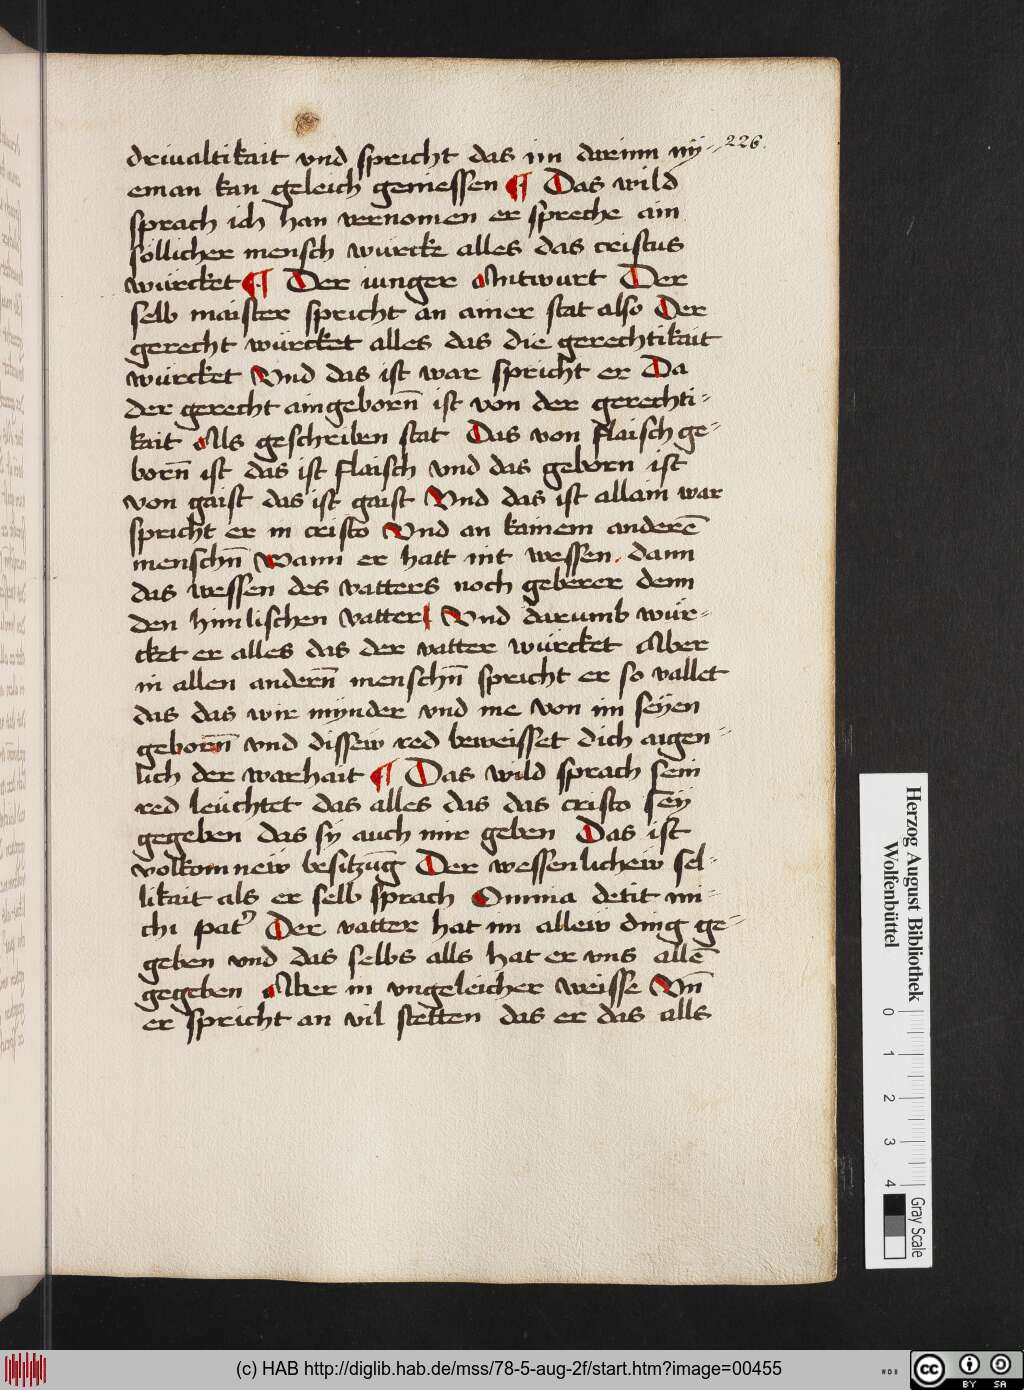 226.
driualtikait vnd spricht das im darinn nÿ-
eman kan geleich geniessen ¶ Das wild
sprach ich han vernomen er spreche ain
söllicher mensch würcke alles das cristus
würcket ¶ Der iunger Antwurt Der
selb maister spricht an ainer stat also Der
gerecht würcket alles das die gerechtikait
würcket Vnd das ist war spricht er Da
der gerecht aingeborn̄ ist von der gerechti-
kait Als geschriben stat Das von flaisch ge-
born̄ ist das ist flaisch vnd das geborn ist
von gaist das ist gaist Vnd das ist allain war
spricht er in cristo Vnd an kainem anderē
menschn̄ Wann er hatt nit wessen dann
das wessen des vatters noch geberer denn
den himlischen vatter Vnd darumb wür-
cket er alles das der vatter würcket Aber
in allen andern̄ menschn̄ spricht er so vallet
das das wir mynder vnd me von im seyen
geborn̄ vnd dissew red beweisset dich aigen-
lich der warhait ¶ Das wild sprach sein
red leüchtet das alles das das cristo seÿ
gegeben das sÿ auch mir geben Das ist
volkomnew besitzūg Der wessenlichew sel-
likait als er selb sprach Omnia detit mi-
chi pat᾽ Der vatter hat im allew ding ge-
geben vnd das selbs alls hat er vns allē
gegeben Aber in vngeleicher weisse Vn̄
er spricht an vil stetten das er das alls
Herzog August Bibliothek
Wolfenbüttel
0 1 2 3 4
Gray Scale
(c) HAB http://diglib.hab.de/mss/78-5-aug-2f/start.htm?image=00455
cc BY SA